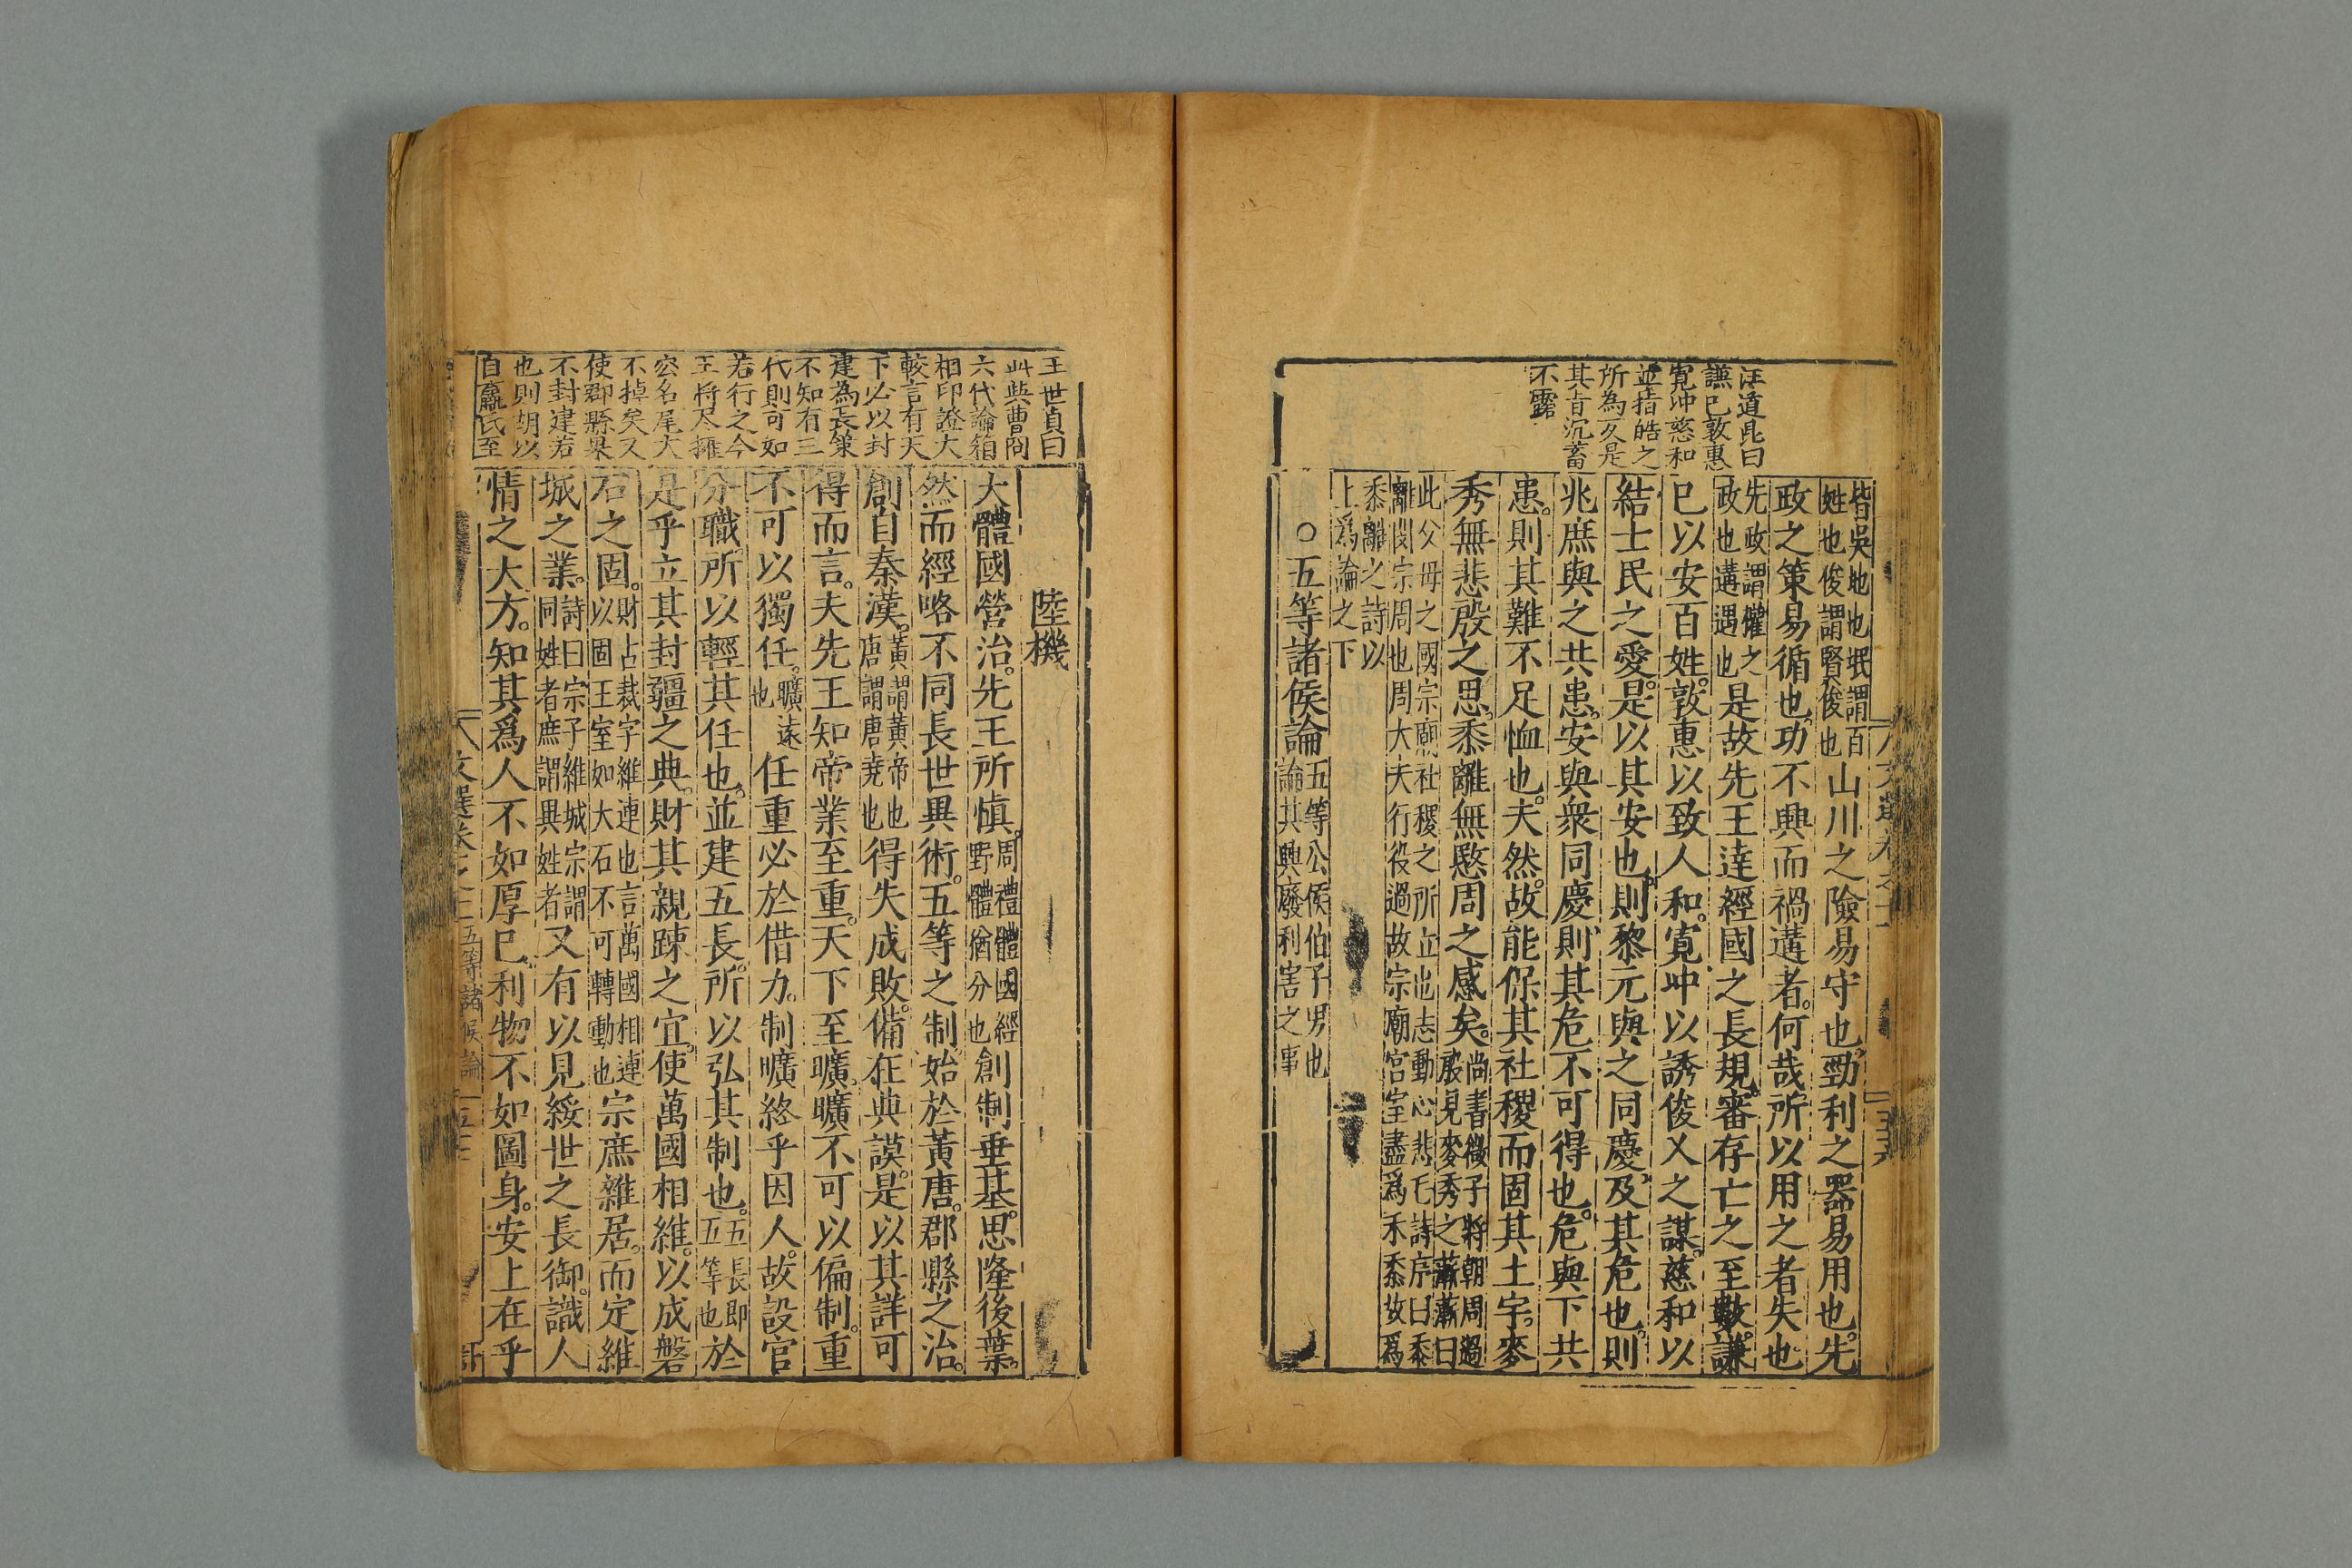 汪道昆曰
謙已敦惠
寬冲慈和
並指皓之
所為反是
其旨沉蓄
不露
皆吳地也氓謂百
姓也俊謂賢俊也
山川之險易守也勁利之器易用也先
政之策易循也功不興而禍遘者何哉所以用之者失也
先政謂權之
政也遘遇也
是故先王達經國之長規審存亡之至數謙
已以安百姓敦惠以致人和寬冲以誘俊乂之謀慈和以
結士民之愛是以其安也則黎元與之同慶及其危也則
兆庶與之共患安與衆同慶則其危不可得也危與下共
患則其難不足恤也夫然故能保其社稷而固其土宇麥
秀無悲殷之思黍離無愍周之感矣
尚書微子將朝周過
殷見麥秀之蔪蔪曰
此父母之國宗廟社稷之所立也志動心悲毛詩序曰黍
離閔宗周也周大夫行役過故宗廟宮室盡爲禾黍故爲
黍離之詩以
上爲論之下
○五等諸侯論
五等公侯伯子男也
論其興廢利害之事
王世貞曰
此與曹冏
六代論箱
相印證大
較言有天
下必以封
建為長策
不知有三
代則可如
若行之今
王將尽擁
空名尾大
不掉矣又
使郡縣果
不封建若
也則胡以
自嬴氏至
陸機
大體國營治先王所慎
周禮體國經
野體猶分也
創制垂基思隆後葉
然而經略不同長世異術五等之制始於黃唐郡縣之治
創自秦漢
黃謂黃帝也
唐謂唐堯也
得失成敗備在典謨是以其詳可
得而言夫先王知帝業至重天下至曠曠不可以偏制重
不可以獨任
曠遠
也
任重必於借力制曠終乎因人故設官
分職所以輕其任也並建五長所以弘其制也
五長即
五等也
於
是乎立其封疆之典財其親踈之宜使萬國相維以成磐
石之固
財占裁字維連也言萬國相連
以固王室如大石不可轉動也
宗庶雜居而定維
城之業
詩曰宗子維城宗謂
同姓者庶謂異姓者
又有以見綏世之長御識人
情之大方知其爲人不如厚已利物不如圖身安上在乎
五等諸侯論